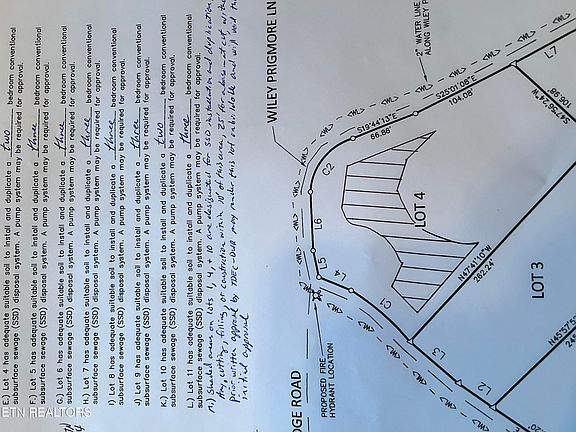 E.) Lot 4 has adequate suitable soil to install and duplicate a two bedroom conventional
subsurface sewage (SSD) disposal system. A pump system may be required for approval.
F.) Lot 5 has adequate suitable soil to install and duplicate a three bedroom conventional
subsurface sewage (SSD) disposal system. A pump system may be required for approval.
G.) Lot 6 has adequate suitable soil to install and duplicate a three bedroom conventional
subsurface sewage (SSD) disposal system. A pump system may be required for approval.
H.) Lot 7 has adequate suitable soil to install and duplicate a three bedroom conventional
subsurface sewage (SSD) disposal system. A pump system may be required for approval.
I.) Lot 8 has adequate suitable soil to install and duplicate a three bedroom conventional
subsurface sewage (SSD) disposal system. A pump system may be required for approval.
J.) Lot 9 has adequate suitable soil to install and duplicate a three bedroom conventional
subsurface sewage (SSD) disposal system. A pump system may be required for approval.
K.) Lot 10 has adequate suitable soil to install and duplicate a two bedroom conventional
subsurface sewage (SSD) disposal system. A pump system may be required for approval.
L.) Lot 11 has adequate suitable soil to install and duplicate a three bedroom conventional
subsurface sewage (SSD) disposal system. A pump system may be required for approval.
M.) Shaded areas on lots 1, 4, + 10 are designated for SSD installation and duplication.
Any cutting, filling, or construction within 10' of this area, 25' for
prior written approval by TDEC-DWR may render this lot unbuildable and will void the
initial approval
WILEY PRIGMORE LN
2" WATER LINE
ALONG WILEY P
<W>
S19°44'13"E
66.86'
S25°01'08"E
104.08'
L7
106.98'
C2
L6
L5
L4
C1
L3
L2
LOT 4
N47°41'10"W
262.24'
LOT 3
N45°57'5
PROPOSED FIRE
HYDRANT LOCATION
DGE ROAD
ETN REALTORS